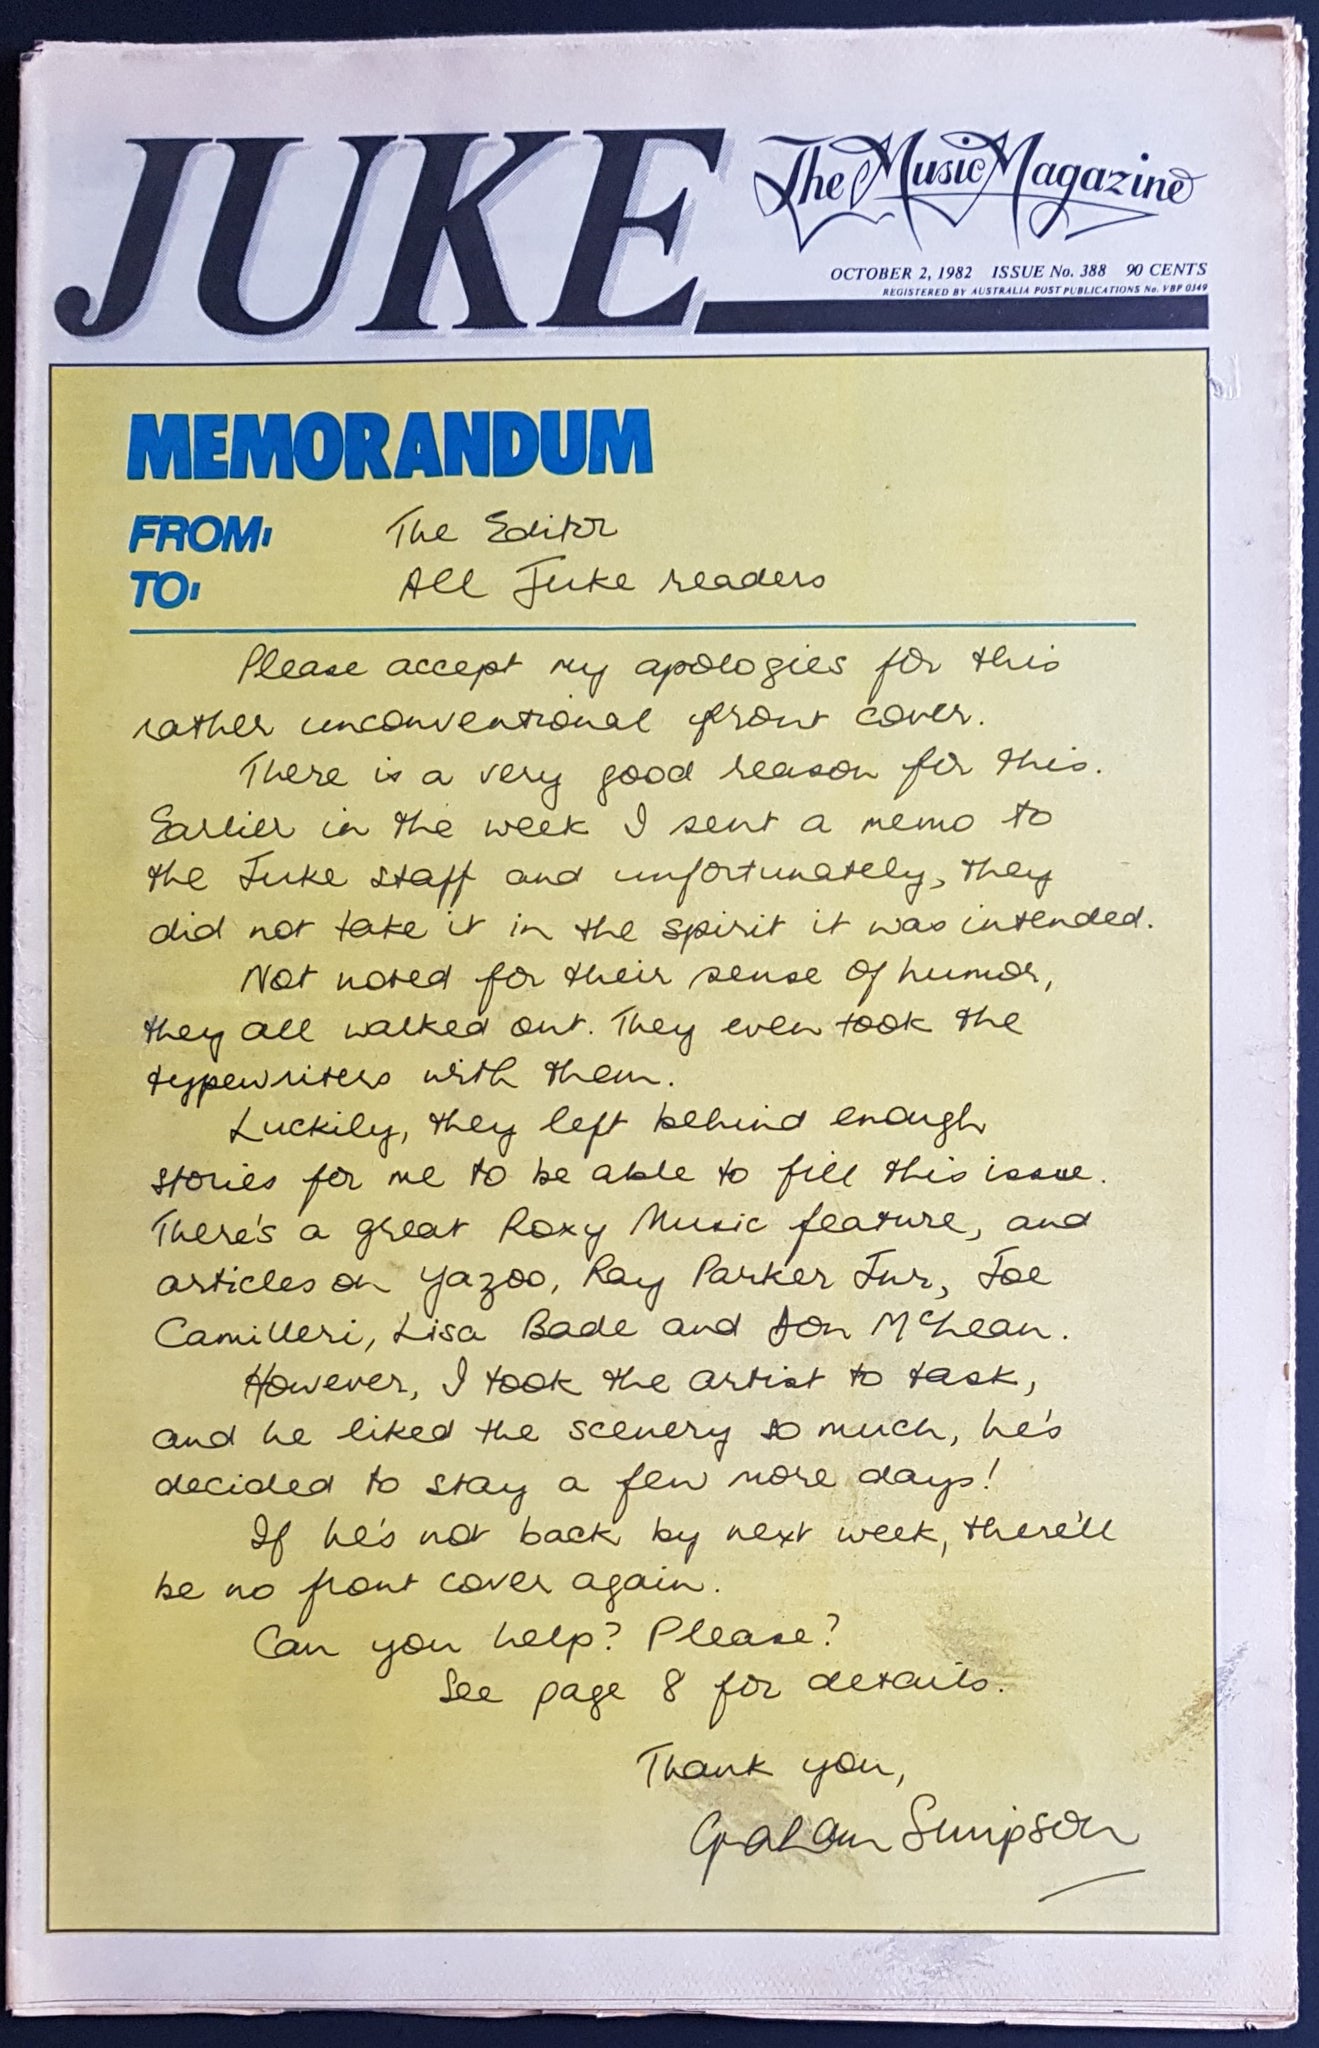 JUKE
The Music Magazine
OCTOBER 2, 1982 ISSUE No. 388 90 CENTS
REGISTERED BY AUSTRALIA POST PUBLICATIONS No. VBP 0349
MEMORANDUM
FROM: The Editor
TO: All Juke readers
Please accept my apologies for this
rather unconventional front cover.
There is a very good reason for this.
Earlier in the week I sent a memo to
the Juke staff and unfortunately, they
did not take it in the spirit it was intended.
Not noted for their sense of humor,
they all walked out. They even took the
typewriters with them.
Luckily, they left behind enough
stories for me to be able to fill this issue.
There's a great Roxy Music feature, and
articles on Yazoo, Ray Parker Jnr, Joe
Camilleri, Lisa Bade and Don McLean.
However, I took the artist to task,
and he liked the scenery so much, he's
decided to stay a few more days!
If he's not back by next week, there'll
be no front cover again.
Can you help? Please?
See page 8 for details.
Thank you,
Graham Simpson